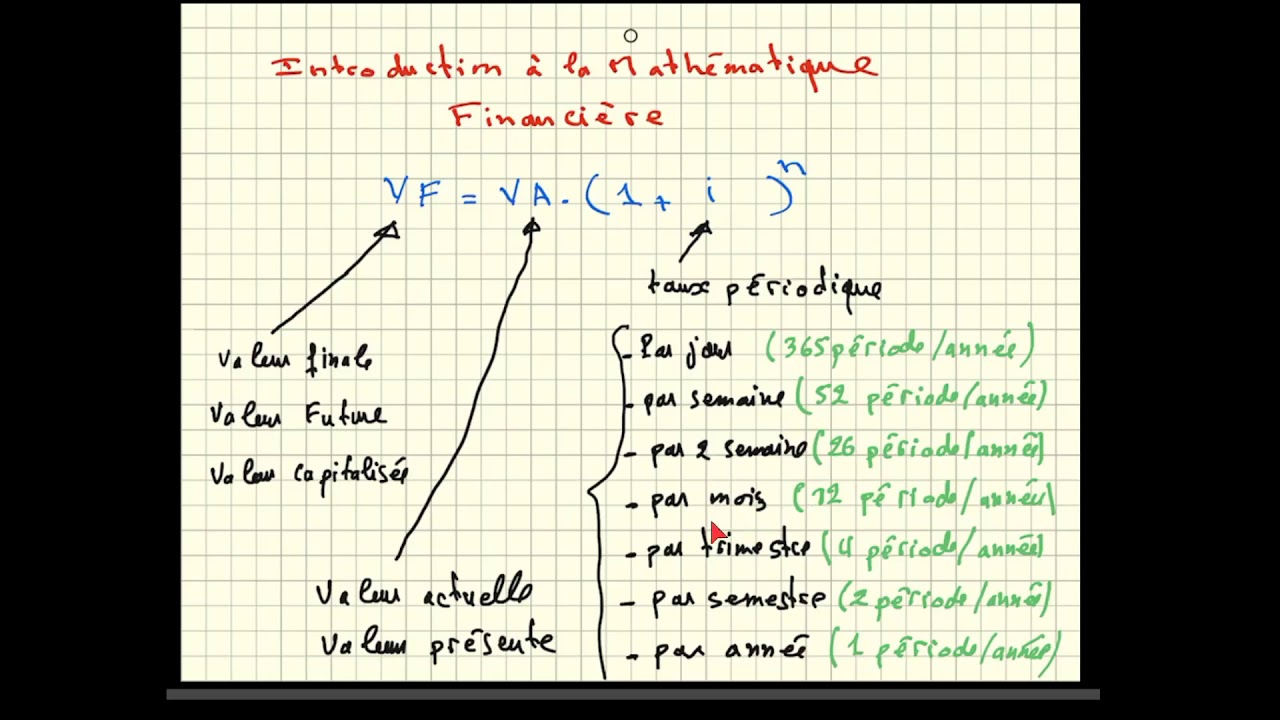 Introduction à la Mathématique
Financière
VF = VA . (1 + i )^n
taux périodique
Valeur finale
Valeur Future
Valeur capitalisée
Valeur actuelle
Valeur présente
- Par jour (365 période/année)
- par semaine (52 période/année)
- par 2 semaine (26 période/année)
- par mois (12 période/année)
- par trimestre (4 période/année)
- par semestre (2 période/année)
- par année (1 période/année)